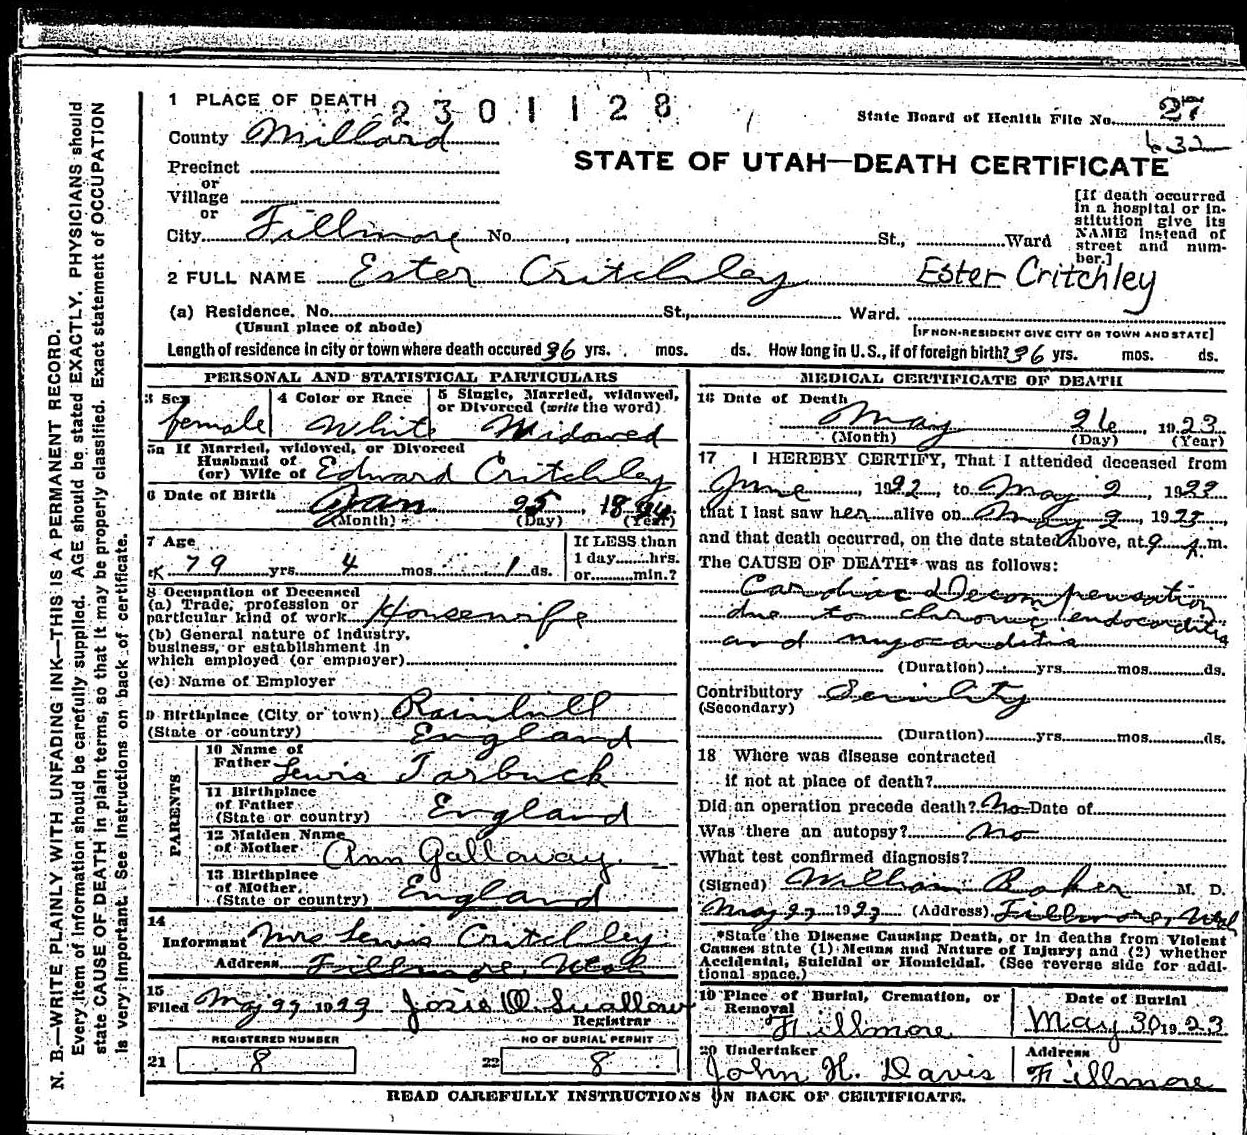 1 PLACE OF DEATH 2301128
State Board of Health File No. 27
632
County Millard
STATE OF UTAH—DEATH CERTIFICATE
Precinct
or
Village
or
City Fillmore No. St., Ward
[If death occurred
in a hospital or in-
stitution give its
NAME instead of
street and num-
ber.]
2 FULL NAME Ester Critchley Ester Critchley
(a) Residence. No. St., Ward.
(Usual place of abode) [IF NON-RESIDENT GIVE CITY OR TOWN AND STATE]
Length of residence in city or town where death occured 36 yrs. mos. ds. How long in U.S., if of foreign birth? 36 yrs. mos. ds.
PERSONAL AND STATISTICAL PARTICULARS
3 Sex female
4 Color or Race White
5 Single, Married, widowed,
or Divorced (write the word)
Widowed
5a If Married, widowed, or Divorced
Husband of
(or) Wife of Edward Critchley
6 Date of Birth Jan 25, 1844
(Month) (Day) (Year)
7 Age
79 yrs. 4 mos. 1 ds.
If LESS than
1 day hrs.
or min.?
8 Occupation of Deceased
(a) Trade, profession or
particular kind of work Housewife
(b) General nature of industry,
business, or establishment in
which employed (or employer)
(c) Name of Employer
9 Birthplace (City or town) Rainhill
(State or country) England
PARENTS
10 Name of
Father Lewis Tarbuck
11 Birthplace
of Father
(State or country) England
12 Maiden Name
of Mother Ann Galloway
13 Birthplace
of Mother.
(State or country) England
14
Informant Mrs Lewis Critchley
Address Fillmore, Utah
15
Filed May 29 1923 Josie O. Swallow
Registrar
REGISTERED NUMBER
21 8
NO OF BURIAL PERMIT
22 8
MEDICAL CERTIFICATE OF DEATH
16 Date of Death
May 26, 1923
(Month) (Day) (Year)
17 I HEREBY CERTIFY, That I attended deceased from
June, 1922, to May 2, 1923
that I last saw her alive on May 2, 1923,
and that death occurred, on the date stated above, at 9 m.
The CAUSE OF DEATH* was as follows:
Cardiac Decompensation
due to chronic endocarditis
and myocarditis
(Duration) yrs. mos. ds.
Contributory Senility
(Secondary)
(Duration) yrs. mos. ds.
18 Where was disease contracted
if not at place of death?
Did an operation precede death? No Date of
Was there an autopsy? no
What test confirmed diagnosis?
(Signed) William Baker M. D.
May 27 1923 (Address) Fillmore, Utah
*State the Disease Causing Death, or in deaths from Violent
Causes state (1) Means and Nature of Injury; and (2) whether
Accidental, Suicidal or Homicidal. (See reverse side for addi-
tional space.)
19 Place of Burial, Cremation, or
Removal
Fillmore
Date of Burial
May 30 1923
20 Undertaker
John H. Davis
Address
Fillmore
READ CAREFULLY INSTRUCTIONS ON BACK OF CERTIFICATE.
N. B.—WRITE PLAINLY WITH UNFADING INK—THIS IS A PERMANENT RECORD.
Every item of information should be carefully supplied. AGE should be stated EXACTLY. PHYSICIANS should
state CAUSE OF DEATH in plain terms, so that it may be properly classified. Exact statement of OCCUPATION
is very important. See instructions on back of certificate.